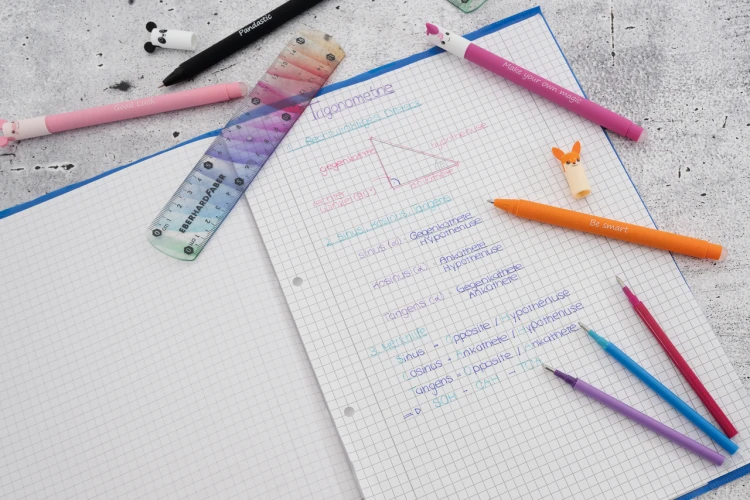 Pandastic
Make your own magic
Trigonometrie
Gegenkathete
Hypothenuse
EBERHARD FABER
2. Sinus, Kosinus, Tangens
Sinus (α) = Gegenkathete
Hypothenuse
Kosinus (α) = Ankathete
Hypothenuse
Tangens (α) = Gegenkathete
Ankathete
Be smart
3.
Sinus = Opposite / Hypothenuse
Cosinus = Ankathete / Hypothenuse
Tangens = Opposite / Ankathete
=> SOH - CAH - TOA